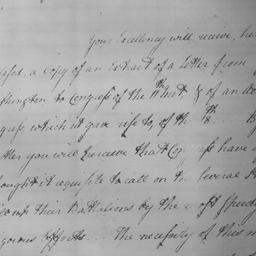 Your Excellency will receive, her
closed, a copy of an Extract of a letter from
shington to Congress of the 11th Inst, & of an
gress, which it gave rise to, of the 18th. B
tter you will perceive that Congress have
hought it requisite to call on the several
their Battalions by the most speedy
gorous efforts. The necessity of this m